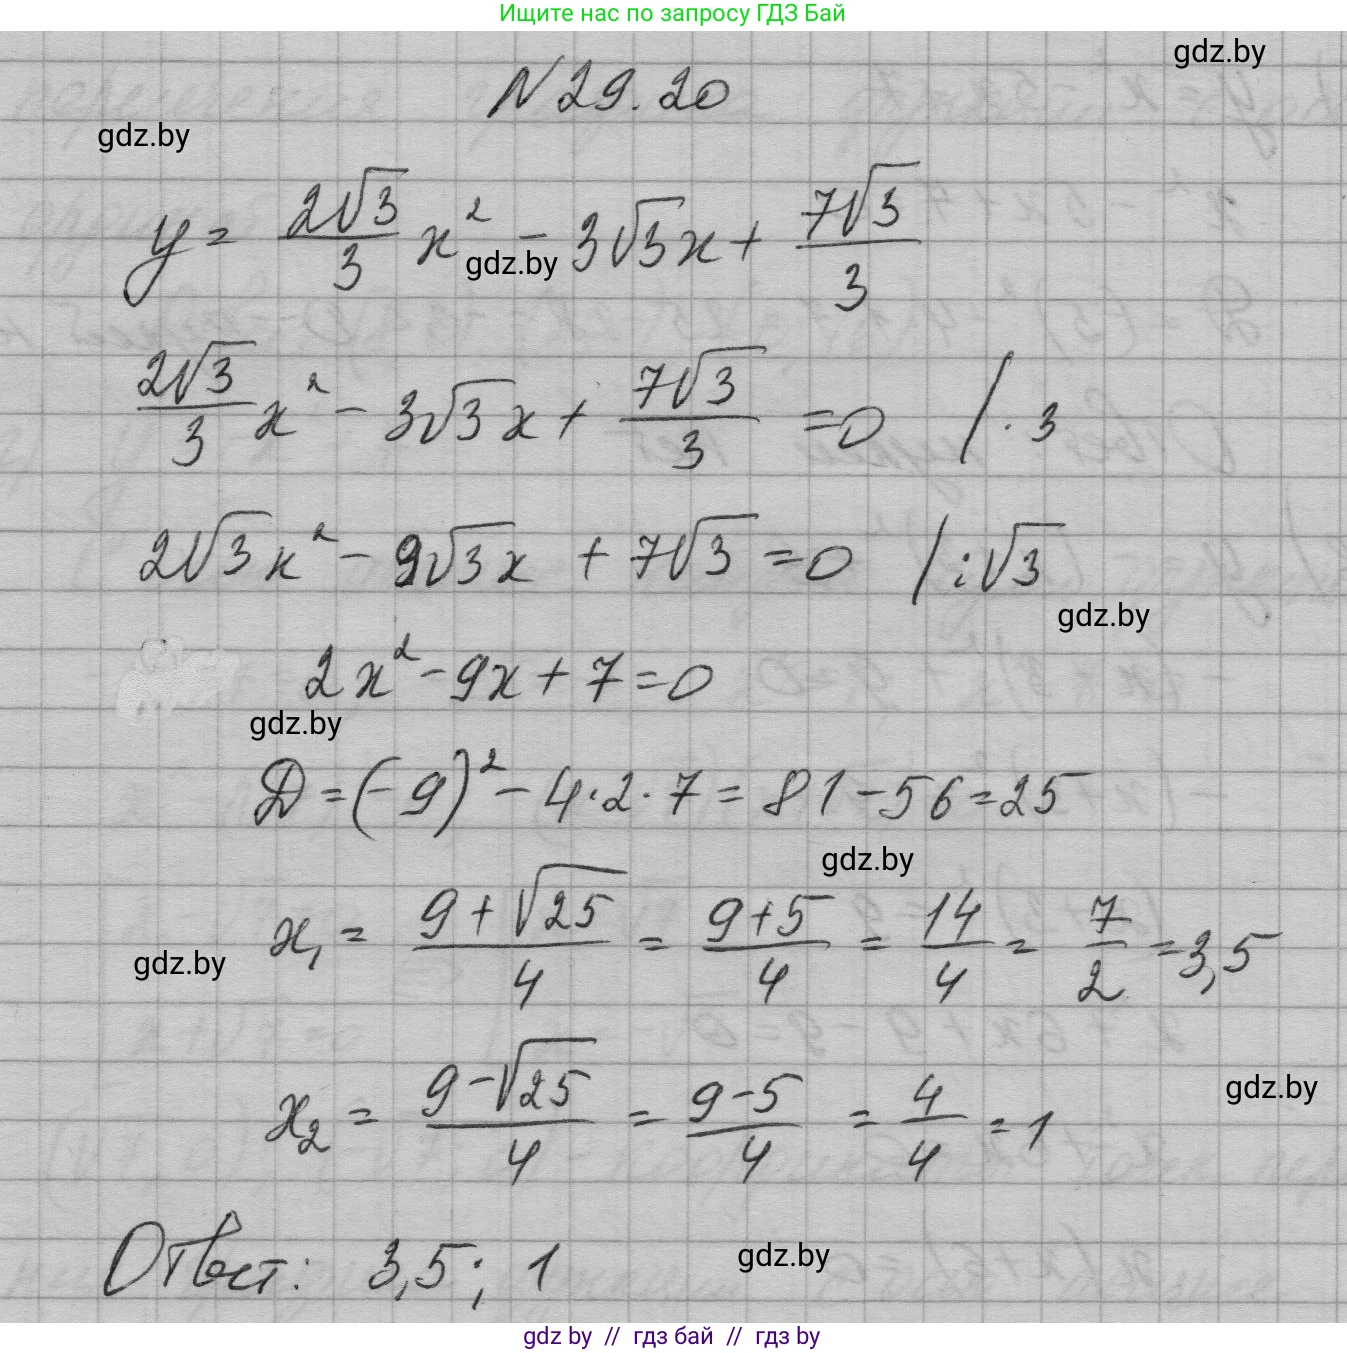 Ищите нас по запросу ГДЗ Бай
gdz.by
N 29.20
gdz.by
y = 2√3/3 x² - 3√3x + 7√3/3
gdz.by
2√3/3 x² - 3√3x + 7√3/3 = 0 /·3
2√3x² - 9√3x + 7√3 = 0 /:√3
gdz.by
2x² - 9x + 7 = 0
gdz.by
D = (-9)² - 4·2·7 = 81 - 56 = 25
gdz.by
x₁ = 9+√25/4 = 9+5/4 = 14/4 = 7/2 = 3,5
gdz.by
x₂ = 9-√25/4 = 9-5/4 = 4/4 = 1
gdz.by
Ответ: 3,5; 1
gdz.by
gdz by // гдз бай // gdz by